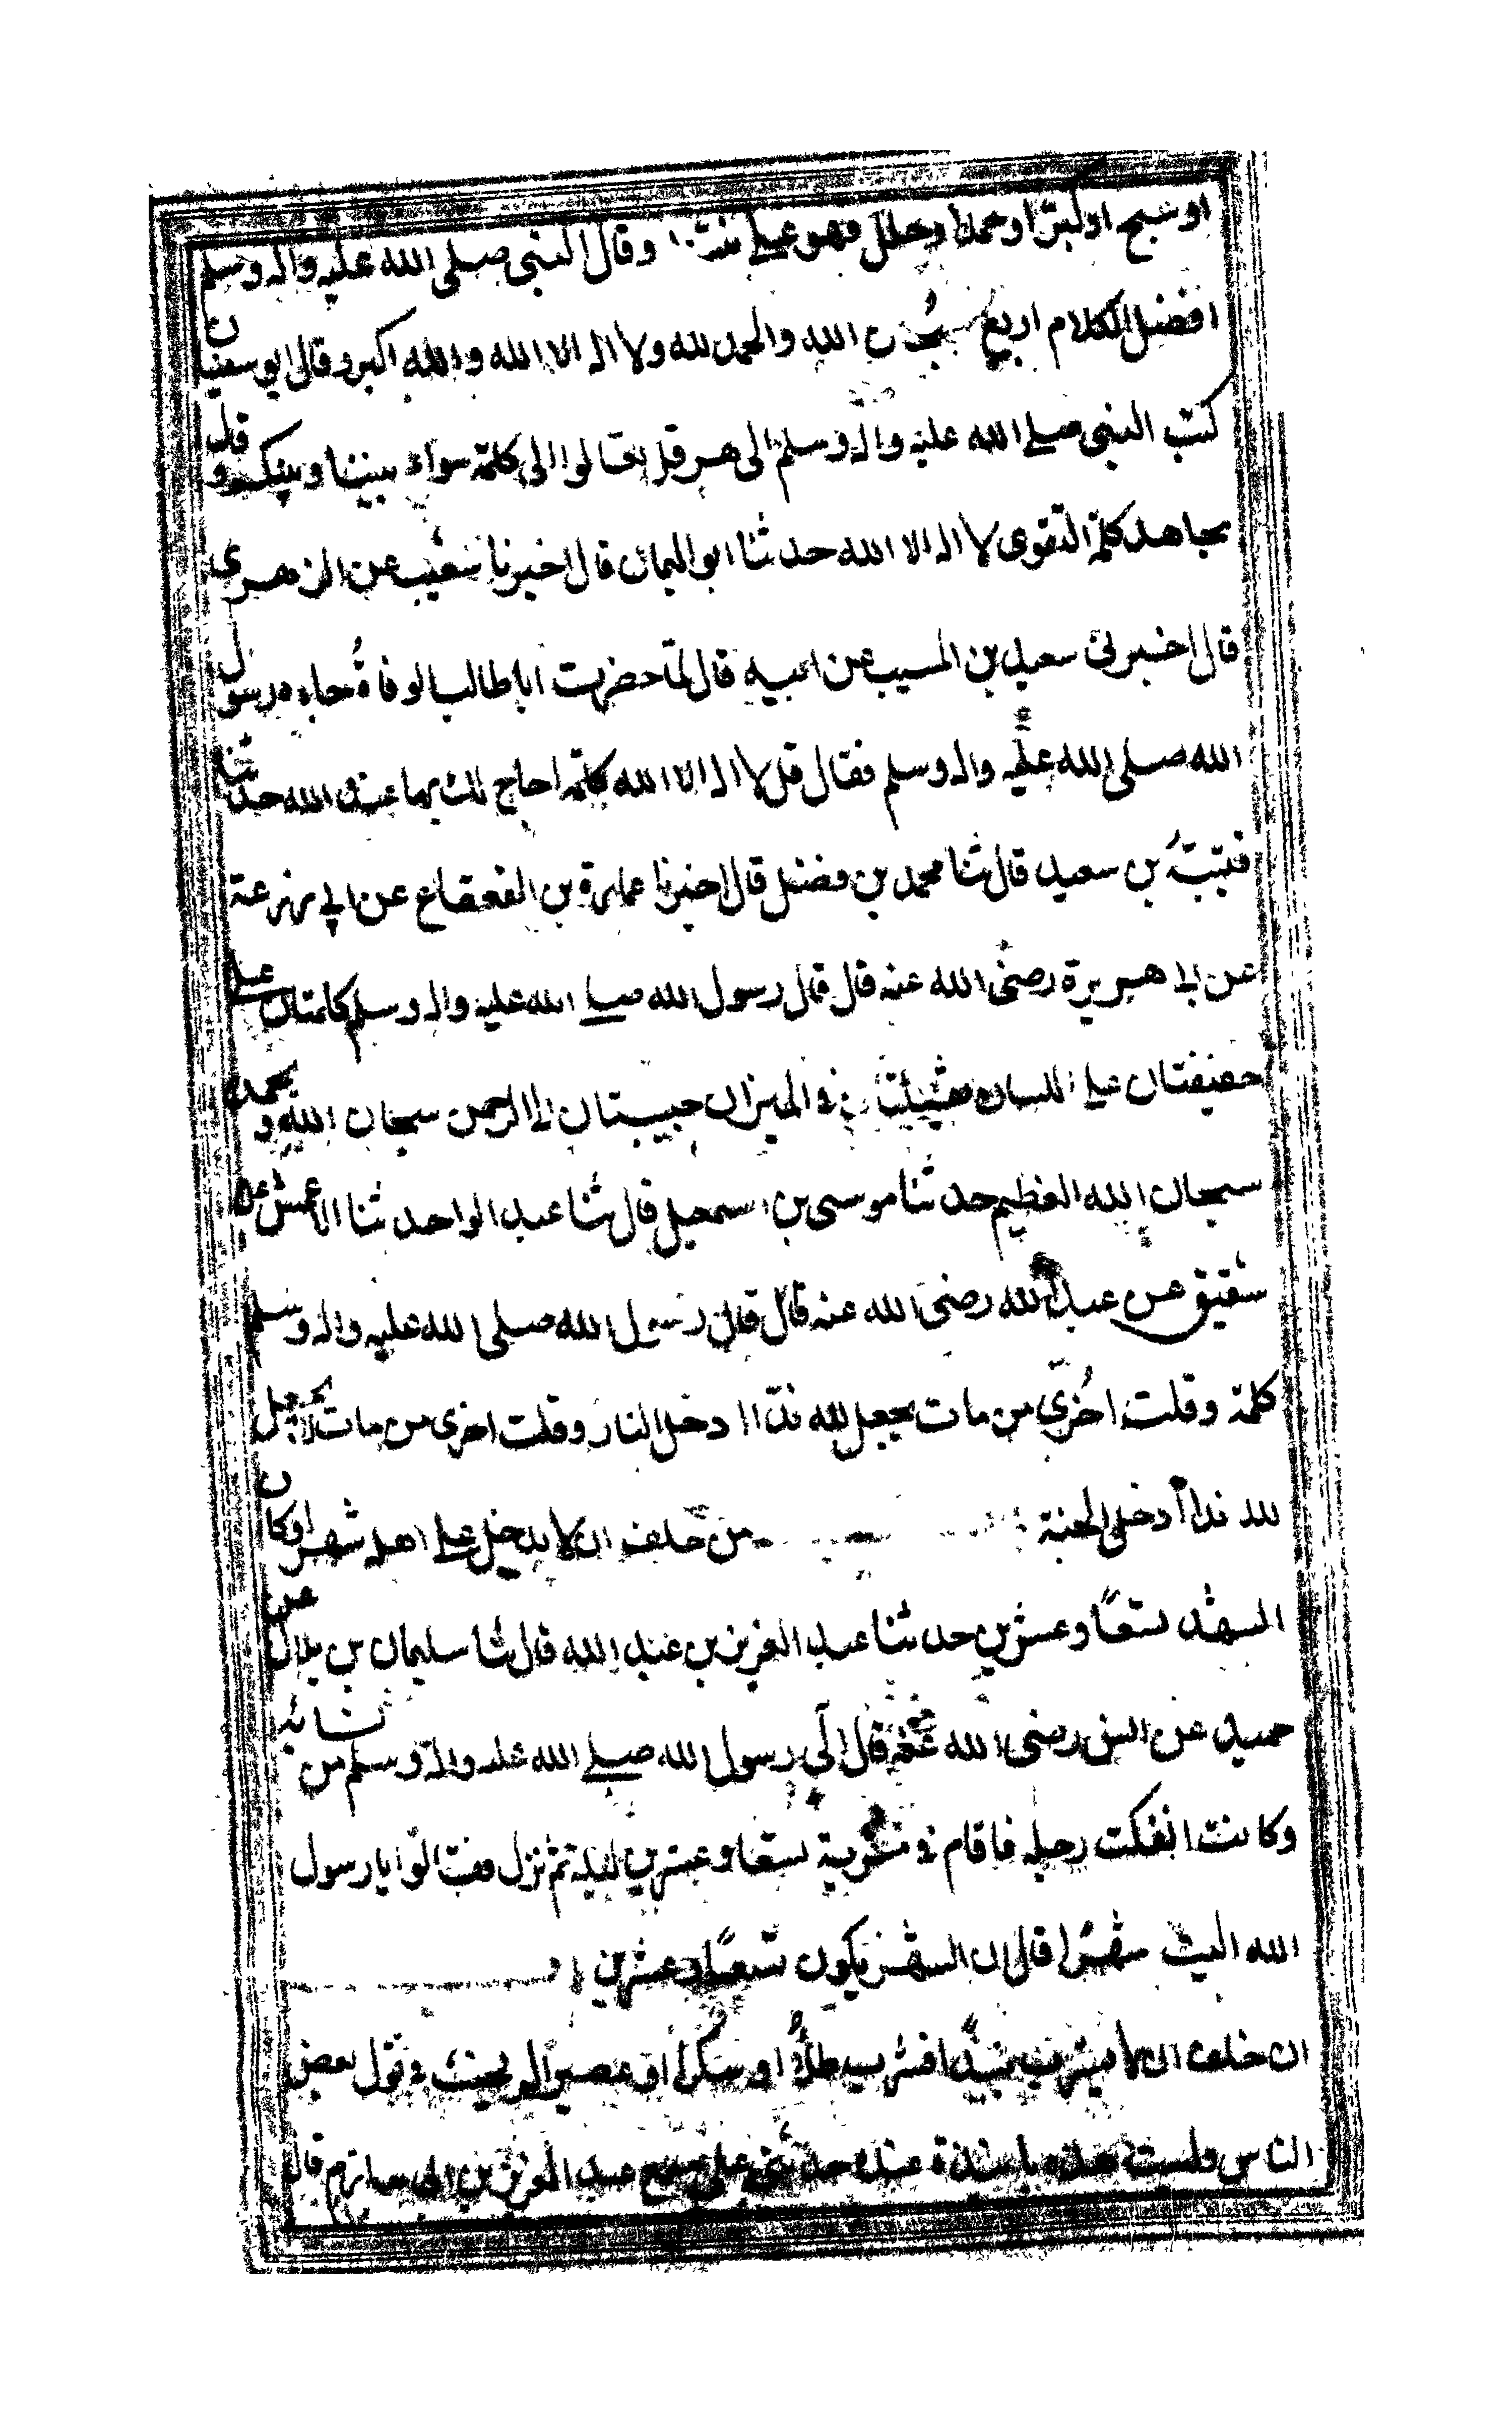 او سبح او كبر او حمد او هلل فهو على نيته وقال النبى صلى الله عليه واله وسلم
افضل الكلام اربع سبحان الله والحمد لله ولا اله الا الله والله اكبر وقال ابو سفيان
كتب النبى صلى الله عليه واله وسلم الى هرقل تعالوا الى كلمة سواء بيننا وبينكم وقال
مجاهد كلمة التقوى لا اله الا الله حدثنا ابو اليمان قال اخبرنا شعيب عن الزهرى
قال اخبرنى سعيد بن المسيب عن ابيه قال لما حضرت ابا طالب الوفاة جاءه رسول
الله صلى الله عليه واله وسلم فقال قل لا اله الا الله كلمة احاج لك بها عند الله حدثنا
قتيبة بن سعيد قال ثنا محمد بن فضيل قال اخبرنا عمارة بن القعقاع عن ابى زرعة
عن ابى هريرة رضى الله عنه قال قال رسول الله صلى الله عليه واله وسلم كلمتان
خفيفتان على اللسان ثقيلتان فى الميزان حبيبتان الى الرحمن سبحان الله وبحمده
سبحان الله العظيم حدثنا موسى بن اسمعيل قال ثنا عبد الواحد ثنا الاعمش عن
شقيق عن عبد الله رضى الله عنه قال قال رسول الله صلى الله عليه واله وسلم
كلمة وقلت اخرى من مات يجعل لله ندا دخل النار وقلت اخرى من مات لا يجعل
لله ندا أدخل الجنة من حلف ان لا يدخل على اهله شهرا وكان
الشهر تسعا وعشرين حدثنا عبد العزيز بن عبد الله قال ثنا سليمان بن بلال عن
حميد عن انس رضى الله عنه قال آلى رسول الله صلى الله عليه واله وسلم من نسائه
وكانت انفكت رجله فاقام فى مشربة تسعا وعشرين ليلة ثم نزل فقالوا يا رسول
الله اليت شهرا قال ان الشهر يكون تسعا وعشرين
ان حلف ان لا يشرب نبيذا فشرب طلاء او سكرا او عصيرا لم يحنث فى قول بعض
الناس وليست هذه بانبذة عنده حدثنى على سمع عبد العزيز بن ابى حازم قال